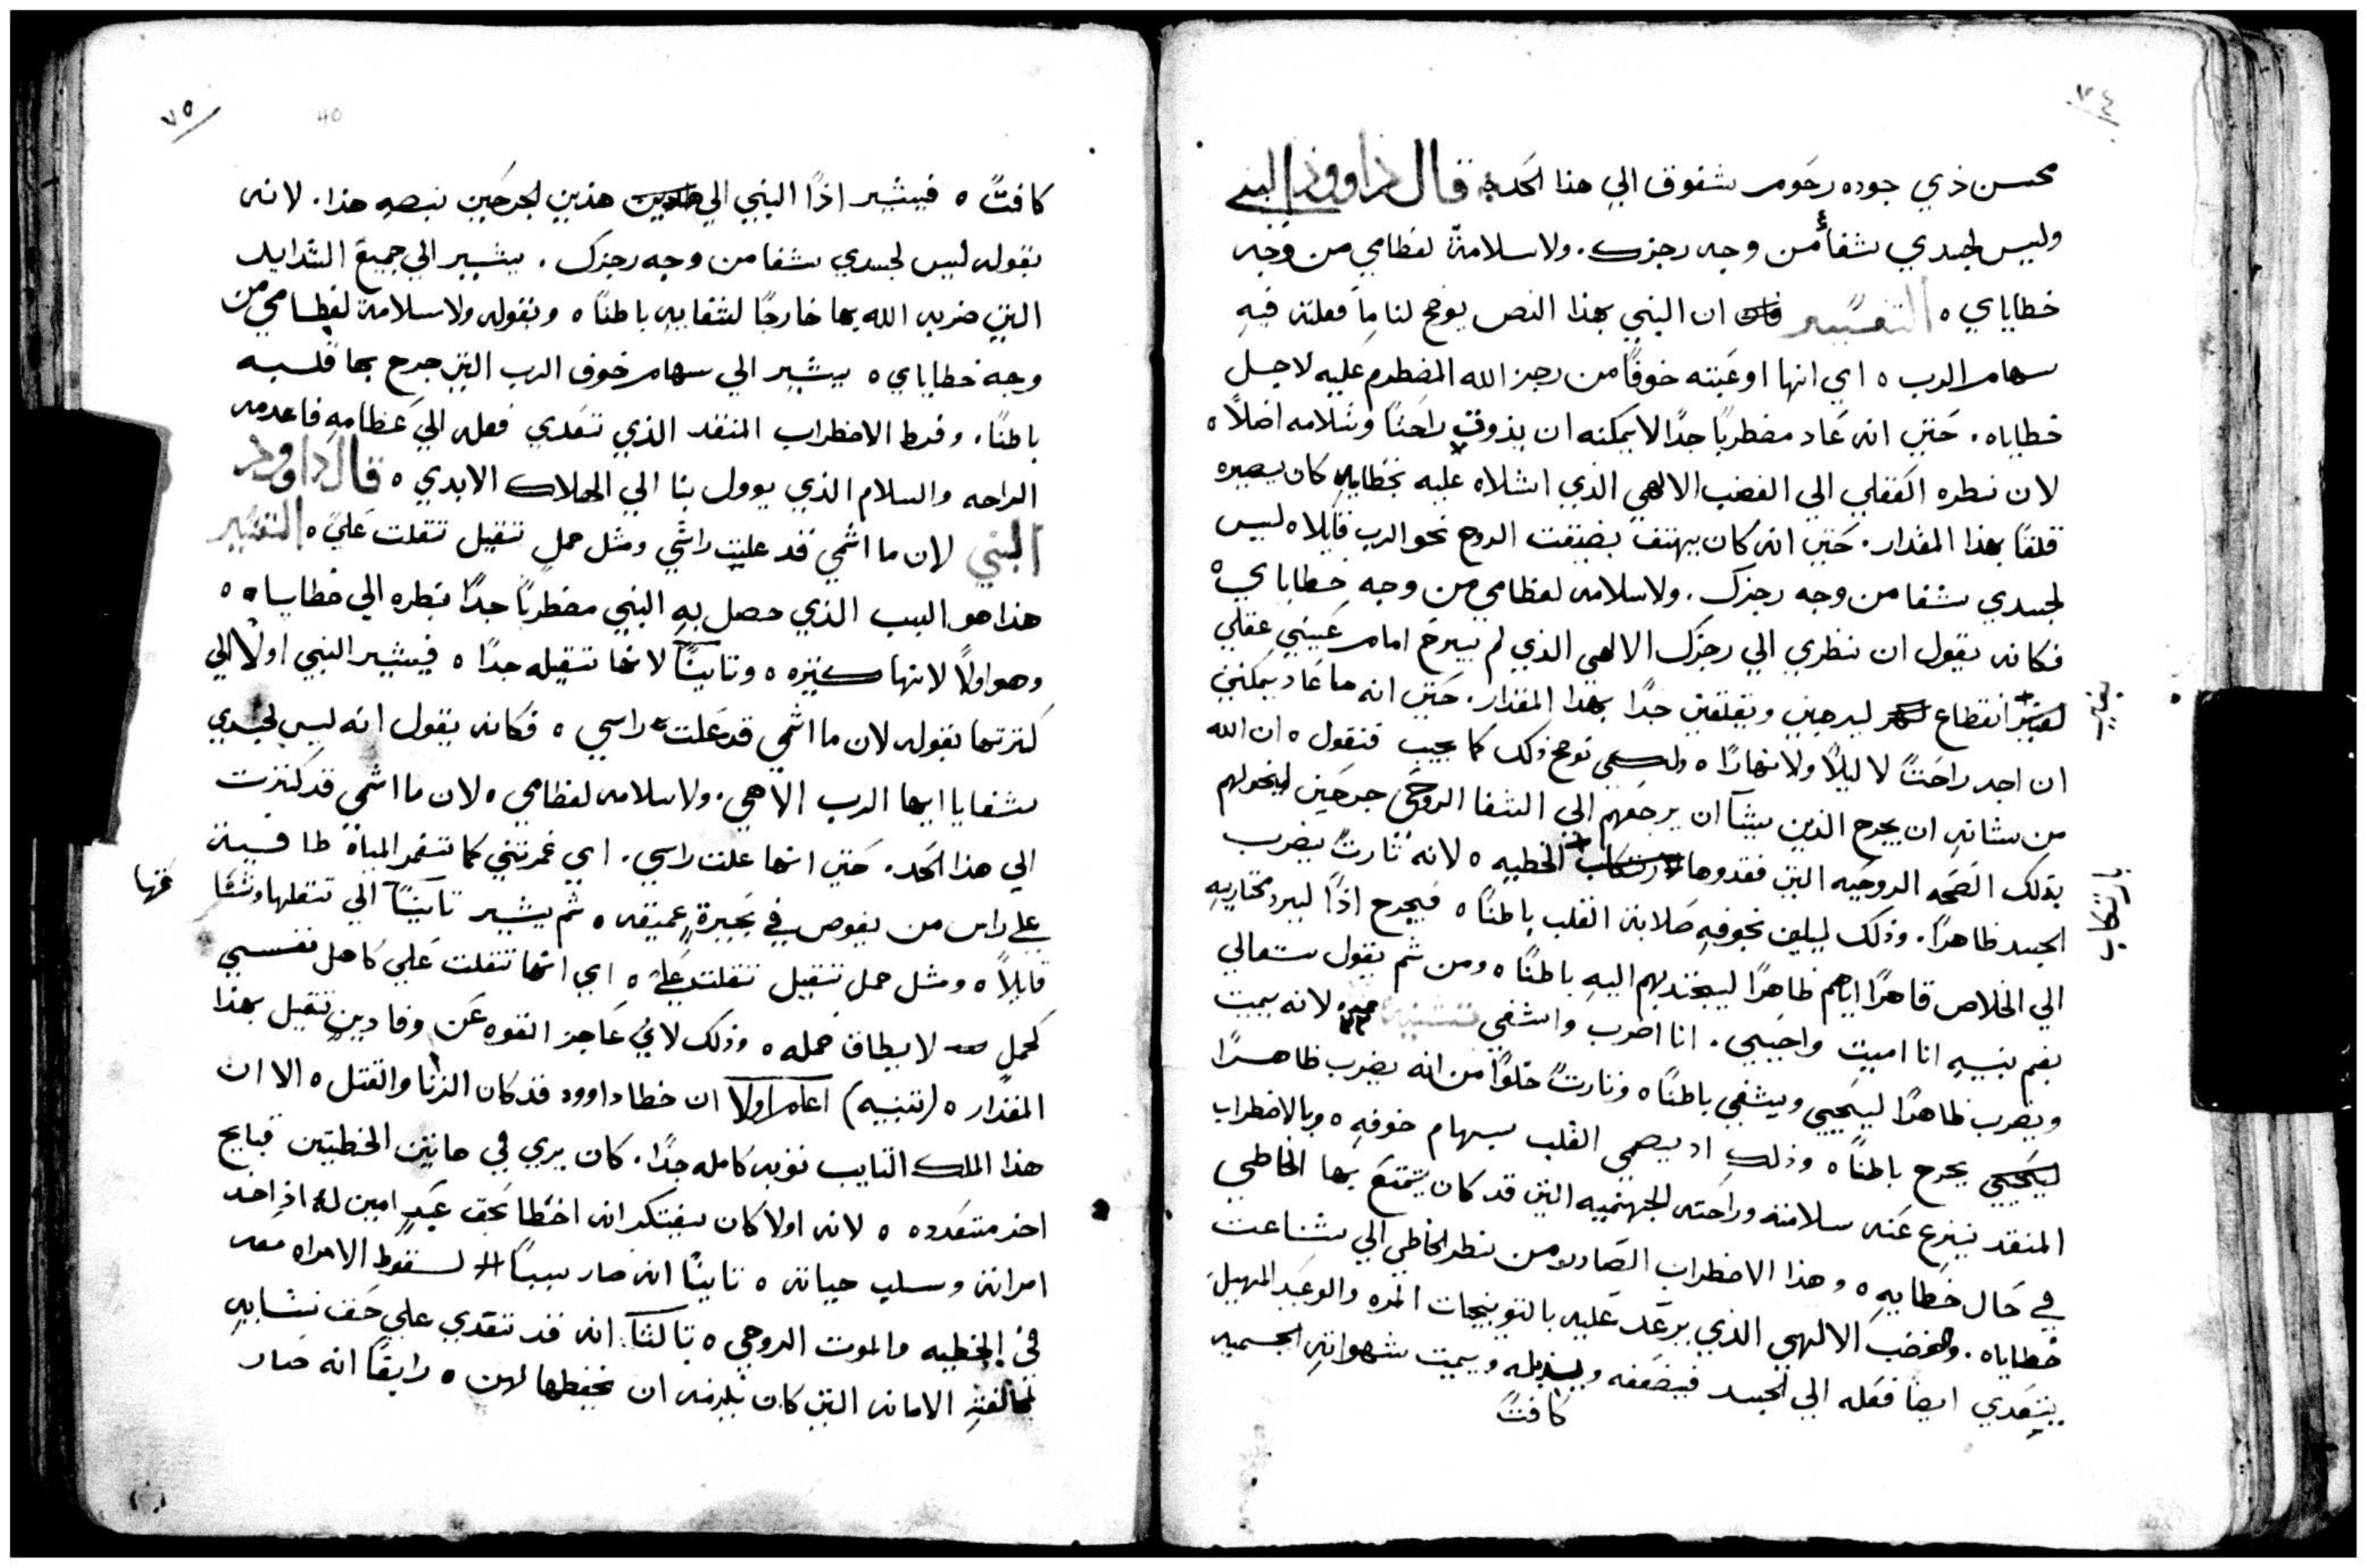 ٧٤
محسن ذي جوده رحوم شفوق الي هذا الحد ٥ قال داوود النبي
وليس لجسدي شفاءً من وجه رجزك. ولا سلامة لعظامي من وجه
خطاياي ٥ التفسير ان النبي بهذا النص يوضح لنا ما فعلته فيه
سهام الرب ٥ اي انها اوعبته خوفًا من رجز الله المضطرم عليه لاجل
خطاياه. حتي انه عاد مضطربًا جدًا لا يمكنه ان يذوق راحتًا وسلامه اصلاً ٥
لان نظره العقلي الي الغضب الالاهي الذي اشلاه عليه بخطاياه كان يصيره
قلقًا بهذا المقدار. حتي انه كان يهتف بضيقت الروح نحو الرب قايلا ٥ ليس
لجسدي شفا من وجه رجزك. ولا سلامه لعظامي من وجه خطاياي ٥
فكانه يقول ان نظري الي رجزك الالاهي الذي لم يبرح امام عيني عقلي
بغير
انقطاع ليرجني ويقلقني جدًا بهذا المقدار. حتي انه ما عاد يمكنني
ان اجد راحتًا لا ليلاً ولا نهارًا ٥ ولكي نوضح ذلك كما يجب فنقول ٥ ان الله
من شانه ان يجرح الذين يشآ ان يرجعهم الي الشفا الروحي جرحين ليخولهم
بذلك الصحه الروحيه التي فقدوها
بارتكاب
الخطيه ٥ لانه تارتً يضرب
الجسد ظاهرًا. وذلك ليلين بخوفه صلابة القلب باطنًا ٥ فيجرح اذًا ليرد مختاريه
الي الخلاص قاهرًا اياهم ظاهرًا ليجتذبهم اليه باطنًا ٥ ومن ثم يقول تعالي
بفم نبيه انا اميت واحيي. انا اضرب واشفي لانه يميت
ويضرب ظاهرًا ليحيي ويشفي باطنًا ٥ وتارتً خلوًا من انه يضرب ظاهرًا
يجرح باطنًا ٥ وذلك اد يصمي القلب بسهام خوفه ٥ وبالاضطراب
المنقد ينزع عنه سلامته وراحته الجهنميه التي قد كان يتمتع بها الخاطي
في حال خطايه ٥ وهذا الاضطراب الصادر من نظر الخاطي الي شناعت
خطاياه. والغضب الالهي الذي يرعد عليه بالتوبيخات المره والوعيد المهيل
يتعدي ايضًا فعله الي الجسد فيضعفه ويذبله ويميت شهواته الجسميه
كافتً
٧٥
40
كافتً ٥ فيشير اذًا النبي الي هذين الجرحين بنصه هذا. لانه
بقوله ليس لجسدي شفا من وجه رجزك. يشير الي جميع الشدايد
التي ضربه الله بها خارجًا لشفايه باطنًا ٥ وبقوله ولا سلامة لعظامي من
وجه خطاياي ٥ يشير الي سهام خوف الرب التي جرح بها قلبه
باطنًا. وفرط الاضطراب المنقد الذي تعدي فعله الي عظامه فاعدمه
الراحه والسلام الذي يوول بنا الي الهلاك الابدي ٥ قال داوود
النبي لان ما اثمي قد علت راسي ومثل حمل ثقيل ثقلت عليَّ ٥ التفسير
هذا هو السبب الذي حصل به النبي مضطربًا جدًا بنظره الي خطاياه ٥
وهو اولاً لانها كثيره ٥ وثانيًا لانها ثقيله جدًا ٥ فيشير النبي اولاً الي
كثرتها بقوله لان ما اثمي قد علت راسي ٥ فكانه يقول انه ليس لجسدي
شفا يا ايها الرب الاهي. ولا سلامه لعظامي ٥ لان ما اثمي قد كثرت
الي هذا الحد. حتي انها علت راسي. اي غمرتني كما تغمر المياة طافية
علي راس من يغوص في بحيرة عميقه ٥ ثم يشير ثانيًا الي ثقلها
قايلاً ٥ ومثل حمل ثقيل ثقلت عليَّ ٥ اي انها ثقلت علي كاهل نفسي
كحمل لا يطاق حمله ٥ وذلك لاني عاجز القوه عن وفا دين ثقيل بهذا
المقدار ٥ (تنبيه) اعلم اولا ان خطا داوود قد كان الزنا والقتل ٥ الا ان
هذا الملك التايب توبه كامله جدًا. كان يري في هاتين الخطيتين قبايح
اخر متعدده ٥ لانه اولا كان يفتكر انه اخطا بحق عبد امين له اذ اخد
امراته وسلب حياته ٥ ثانيًا انه صار سببًا لسقوط الامراه معه
في الخطيه والموت الروحي ٥ ثالثًا انه قد تعدي علي حق نسايه
بمخالفته الامانه التي كان يلزمه ان يحفظها لهن ٥ رابعًا انه صار